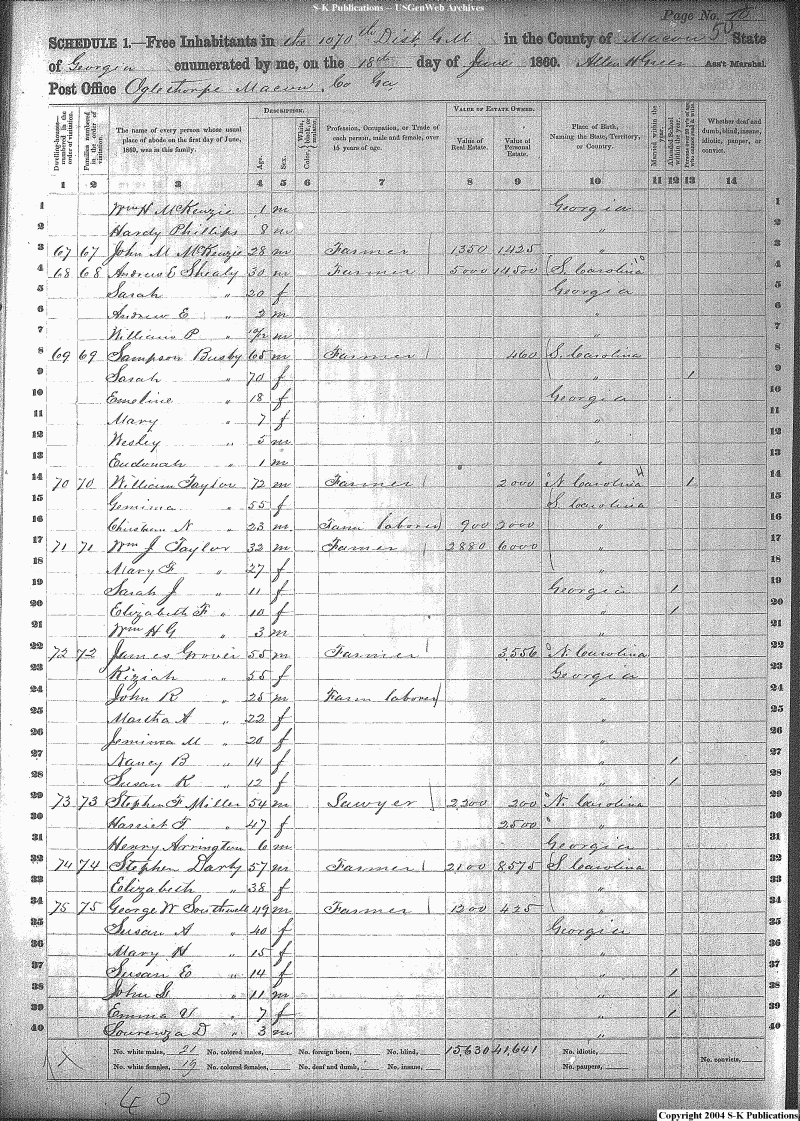 S-K Publications -- USGenWeb Archives
Page No. 
SCHEDULE 1.—Free Inhabitants in the 1070th Dist G M in the County of Macon State
of Georgia enumerated by me, on the 18th day of June 1860. Allen H Greer Ass't Marshal.
Post Office Oglethorpe Macon Co Ga
DESCRIPTION. VALUE OF ESTATE OWNED.
Dwelling-houses—numbered in the order of visitation. Families numbered in the order of visitation. The name of every person whose usual place of abode on the first day of June, 1860, was in this family. Age. Sex. Color, White, black, or mulatto. Profession, Occupation, or Trade of each person, male and female, over 15 years of age. Value of Real Estate. Value of Personal Estate. Place of Birth, Naming the State, Territory, or Country. Married within the year. Attended School within the year. Whether deaf and dumb, blind, insane, idiotic, pauper, or convict.
1 2 3 4 5 6 7 8 9 10 11 12 13 14
1 Wm H McKenzie 1 m Georgia 1
2 Hardy Phillips 8 m " 2
3 67 67 John M McKenzie 28 m Farmer 1350 1425 " 3
4 68 68 Andrew E Shealy 30 m Farmer 5000 14500 S. Carolina 4
5 Sarah " 20 f Georgia 5
6 Andrew E " 2 m " 6
7 William P " m " 7
8 69 69 Sampson Busby 65 m Farmer 460 S. Carolina 8
9 Sarah " 70 f " 1 9
10 Emeline " 18 f Georgia 10
11 Mary " 7 f " 11
12 Wesley " 5 m " 12
13 " 1 m " 13
14 70 70 William Taylor 72 m Farmer 2000 N Carolina 1 14
15 Gemima " 55 f S Carolina 15
16 N " 23 m Farm laborer 900 3000 " 16
17 71 71 Wm J Taylor 32 m Farmer 2880 6000 " 17
18 Mary F " 27 f " 18
19 Sarah J " 11 f Georgia 1 19
20 Elizabeth F " 10 f " 1 20
21 Wm H G " 3 m " 21
22 72 72 James Grover 55 m Farmer 3,556 N. Carolina 22
23 Kiziah " 55 f Georgia 23
24 John R " 25 m Farm laborer " 24
25 Martha A " 22 f " 25
26 Jemima M " 20 f " 26
27 Nancy B " 14 f " 1 27
28 Susan K " 12 f " 1 28
29 73 73 Stephen F Miller 54 m Lawyer 2,200 200 N. Carolina 29
30 Harriet F " 47 f 2500 " 30
31 Henry Arrington 6 m Georgia 31
32 74 74 Stephen Darby 57 m Farmer 2100 8575 S Carolina 32
33 Elizabeth " 38 f " 33
34 75 75 George W Southwell 49 m Farmer 1200 425 " 34
35 Susan A " 40 f Georgia 35
36 Mary H " 15 f " 36
37 Susan E " 14 f " 1 37
38 John S " 11 m " 1 38
39 Emma V " 7 f " 1 39
40 Lourenza D " 3 m " 40
No. white males, 21 No. colored males, No. foreign born, No. blind, 15,630 41,641 No. idiotic,
No. white females, 19 No. colored females, No. deaf and dumb, No. insane, No. paupers, No. convicts,
40
Copyright 2004 S-K Publications